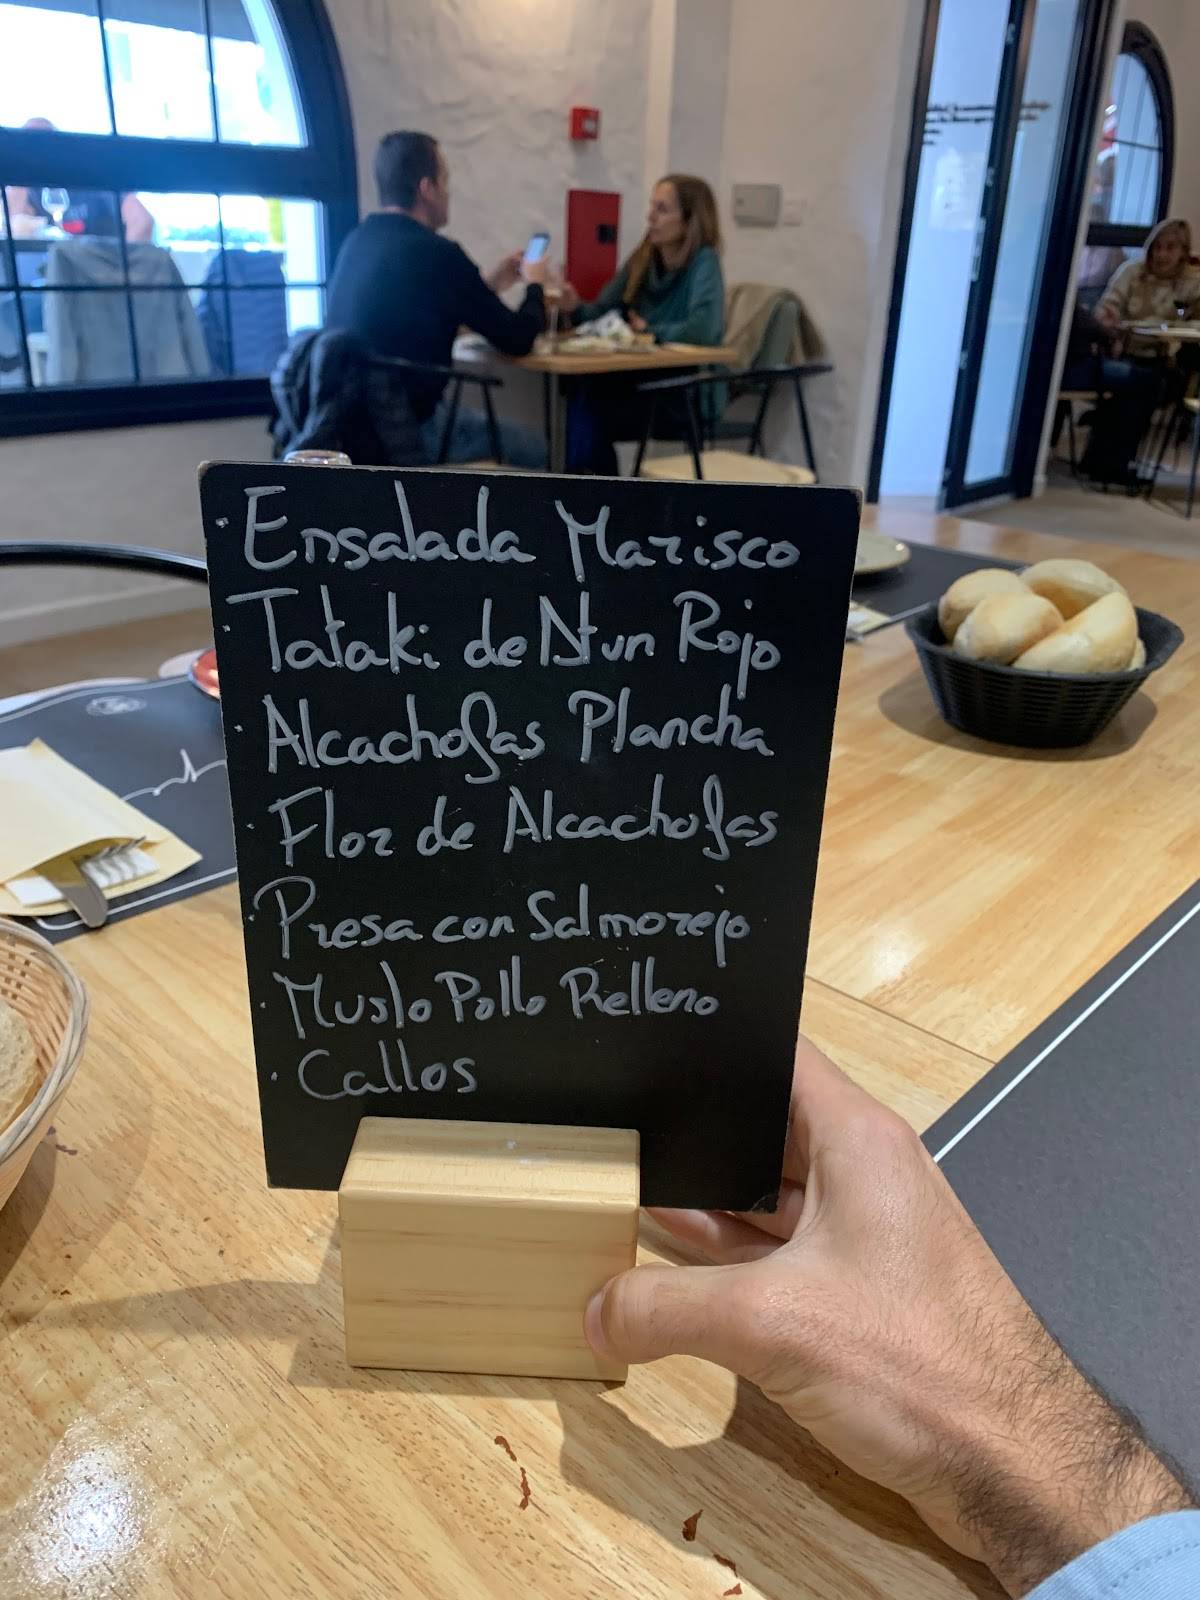 · Ensalada Marisco
· Tataki de Atun Rojo
· Alcachofas Plancha
· Flor de Alcachofas
· Presa con Salmorejo
· Muslo Pollo Relleno
· Callos